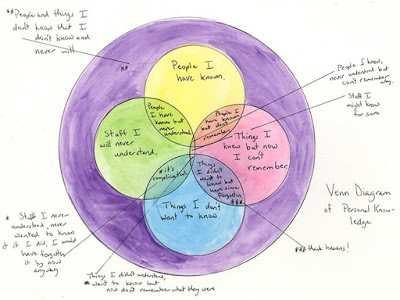 **People and things I
don't know that I
don't know and
never will.
**
People I
have known.
People I knew,
never understood but
can't remember
why.
Stuff I
might know
for sure
People
I have
known but
never
understood.
People I
have known
but don't
remember.
Stuff I
will never
understand.
Things I
knew but now
I can't
remember.
*it's
complicated
Things
I didn't
want to
know but
have since
forgotten
***
Things I don't
want to know.
Venn Diagram
of Personal Know-
ledge
* Stuff I never
understood, never
wanted to know
& if I did, I would
have forgotten
it by now
anyway
*** thank heavens!
Things I didn't understand,
want to know but
now don't remember what they were